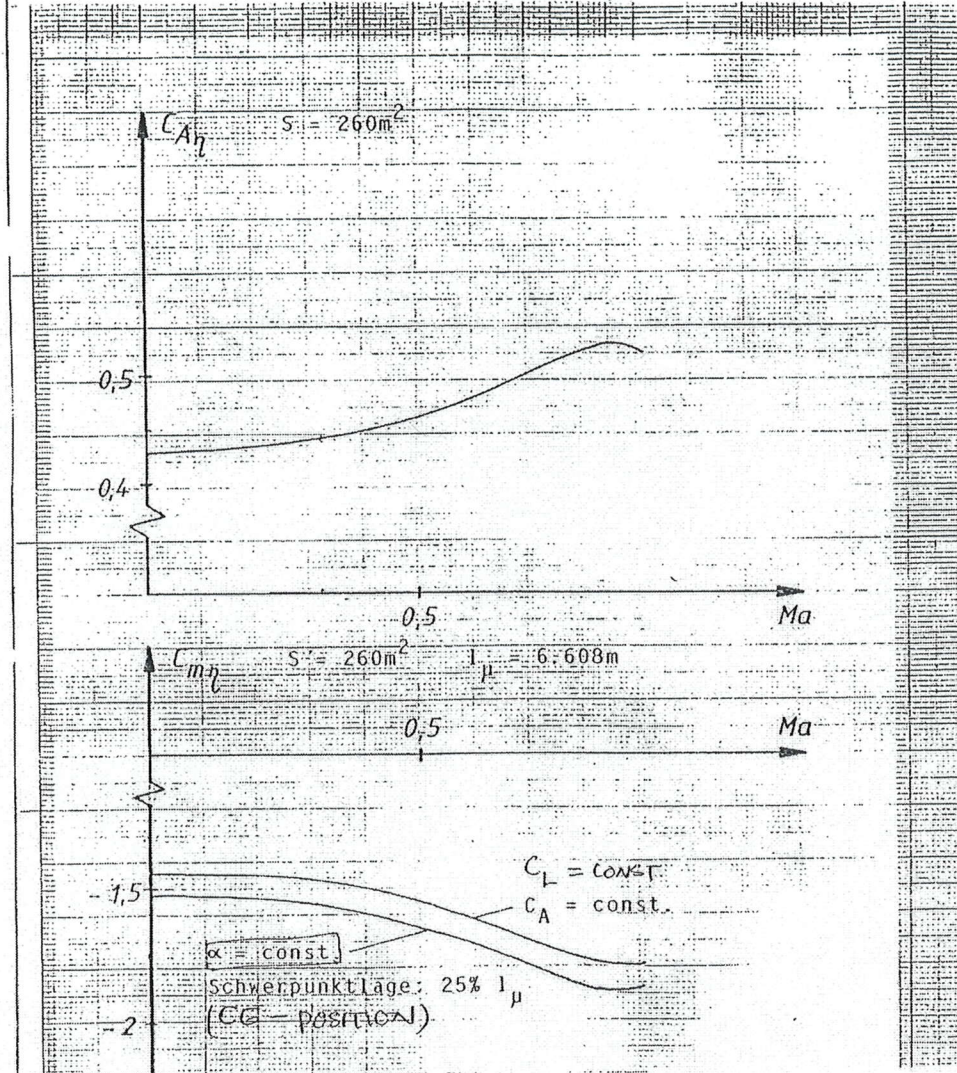 C_Aη S = 260m²
0,5
0,4
0,5
Ma
C_mη S = 260m² l_μ = 6,608m
0,5 Ma
C_L = CONST
- 1,5
C_A = const.
α = const.
Schwerpunktlage: 25% l_μ
(CG - POSITION)
- 2